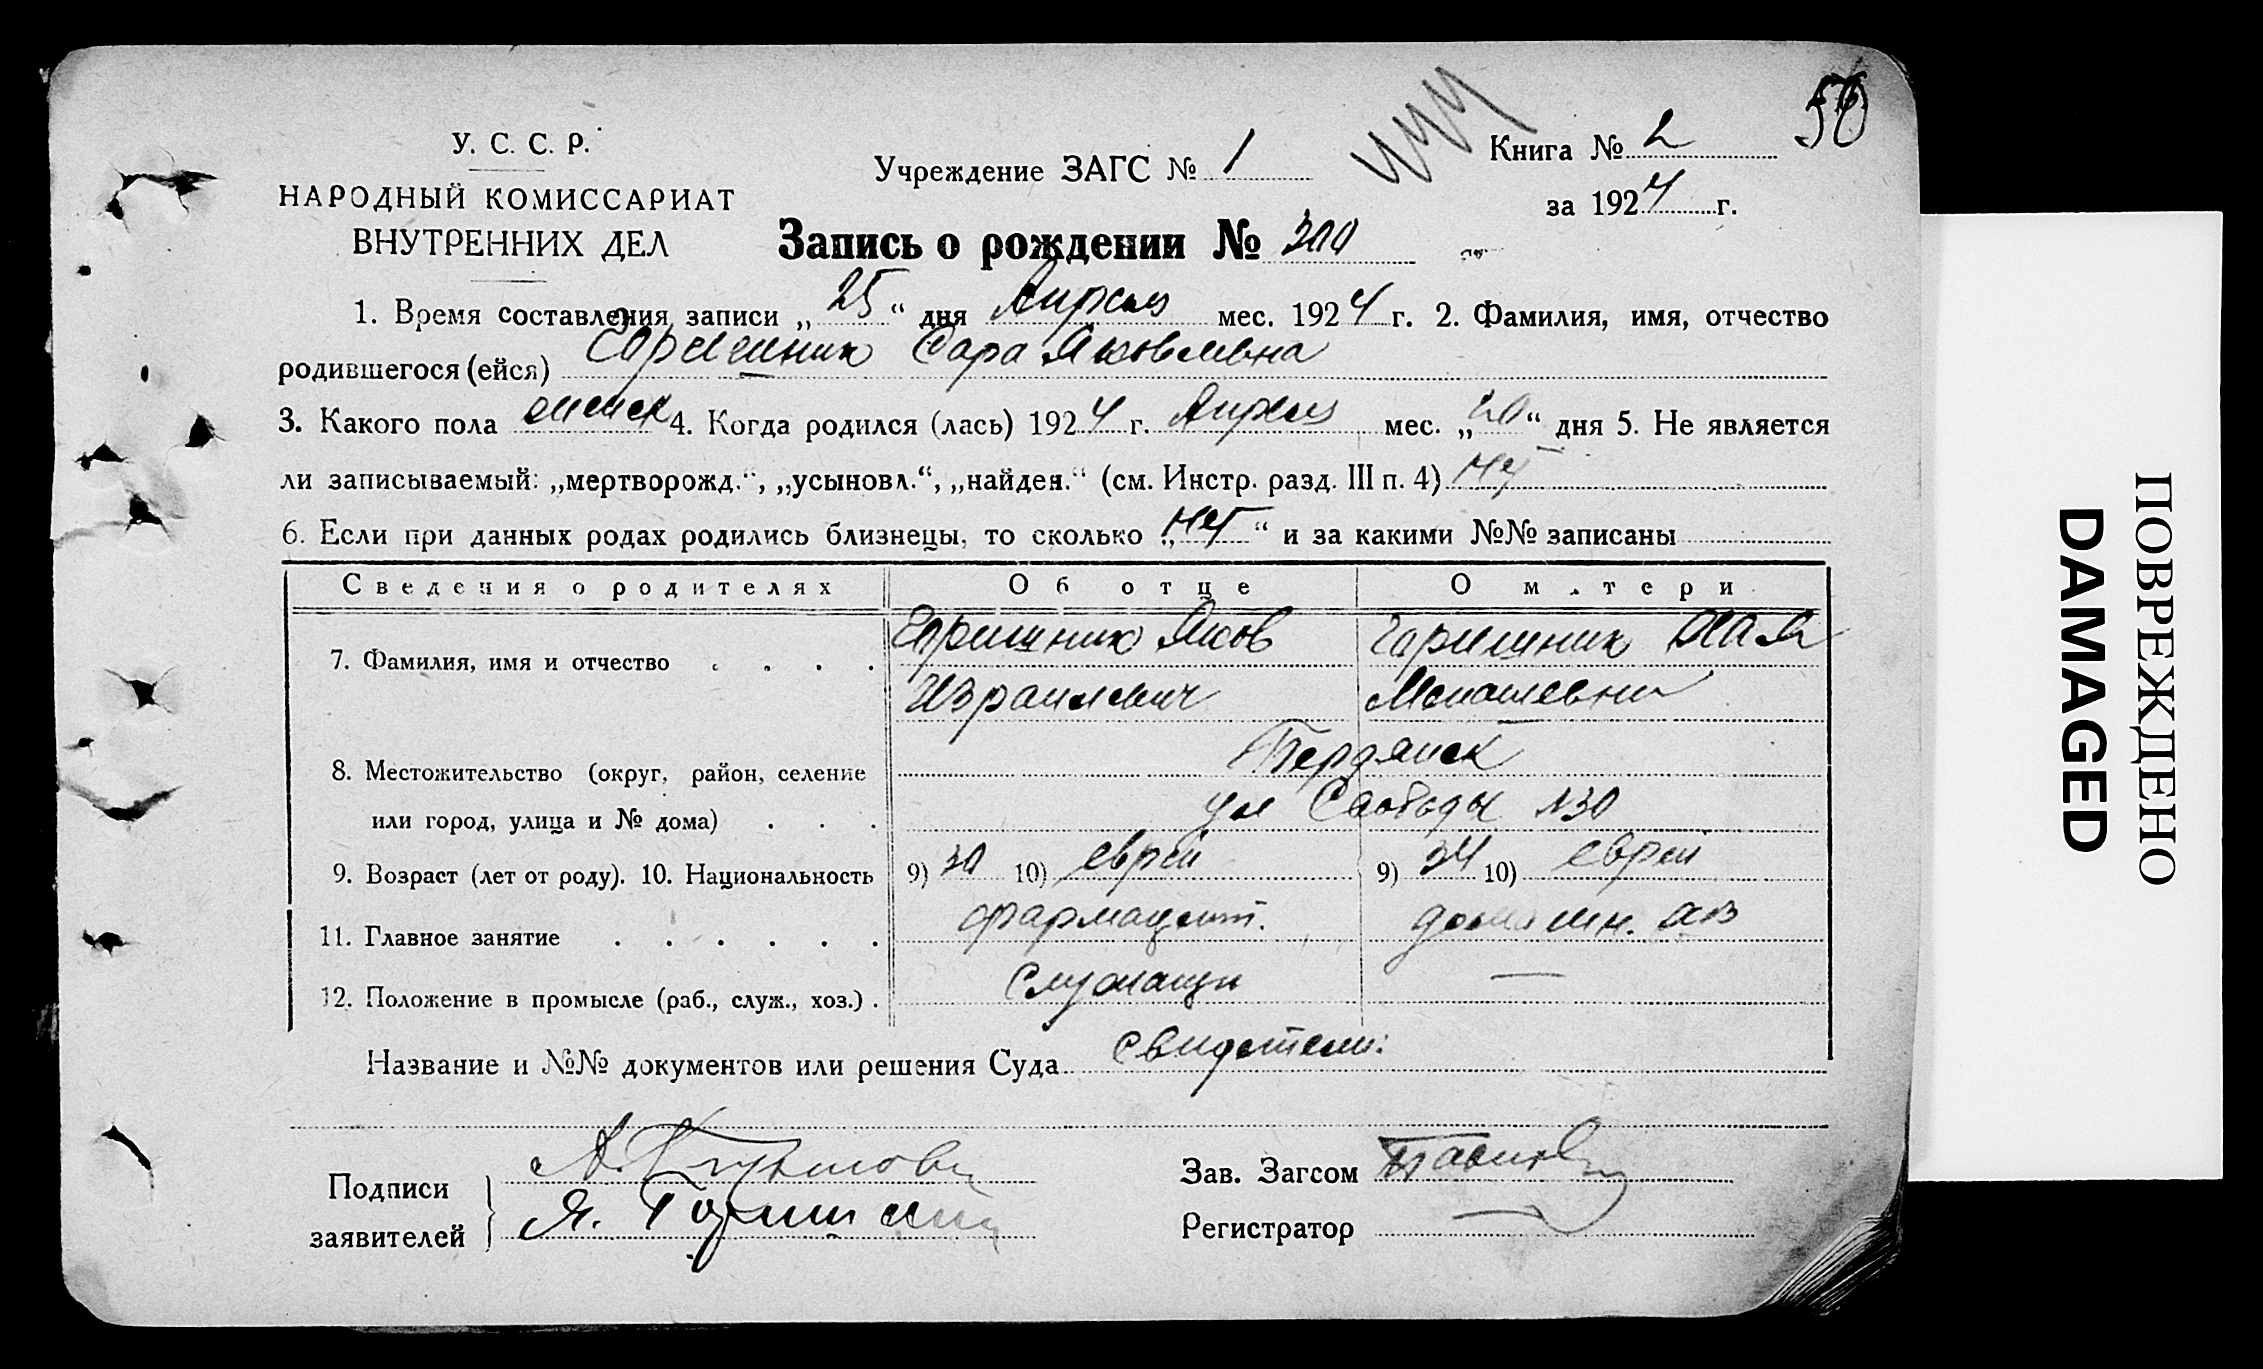 50
У. С. С. Р.
НАРОДНЫЙ КОМИССАРИАТ
ВНУТРЕННИХ ДЕЛ
Учреждение ЗАГС № 1
Книга № 2
за 1924 г.
Запись о рождении № 300
1. Время составления записи „ 25 “ дня Апреля мес. 1924 г. 2. Фамилия, имя, отчество
родившегося (ейся) Сара Яковлевна
3. Какого пола женск 4. Когда родился (лась) 1924 г. Апреля мес. „20“ дня 5. Не является
ли записываемый: „мертворожд.“, „усыновл.“, „найден.“ (см. Инстр. разд. III п. 4) нет
6. Если при данных родах родились близнецы, то сколько „ нет “ и за какими №№ записаны
Сведения о родителях Об отце О матери
7. Фамилия, имя и отчество . . . . Яков Хая
Израилевич Менашевна
8. Местожительство (округ, район, селение Бердянск
или город, улица и № дома) . . . ул Свободы №30
9. Возраст (лет от роду). 10. Национальность 9) 30 10) еврей 9) 24 10) еврей
11. Главное занятие . . . . . . фармацевт. домашн. хоз
12. Положение в промысле (раб., служ., хоз.) . Служащи —
Название и №№ документов или решения Суда свидетели:
Подписи
заявителей
А.
Я.
Зав. Загсом
Регистратор
ПОВРЕЖДЕНО
DAMAGED